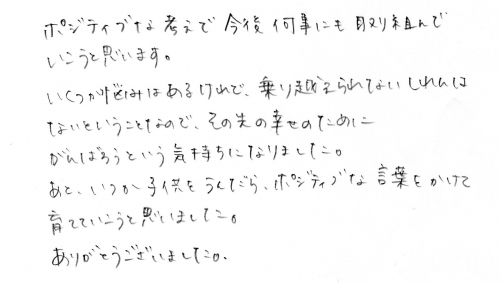 ポジティブな考えで今後何事にも取り組んで
いこうと思います。
いくつか悩みはあるけれど、乗り越えられてないしれんは
ないということなので、その先の幸せのために
がんばろうという気持ちになりました。
あと、いつか子供をうんだら、ポジティブな言葉をかけて
育てていこうと思いました。
ありがとうございました。